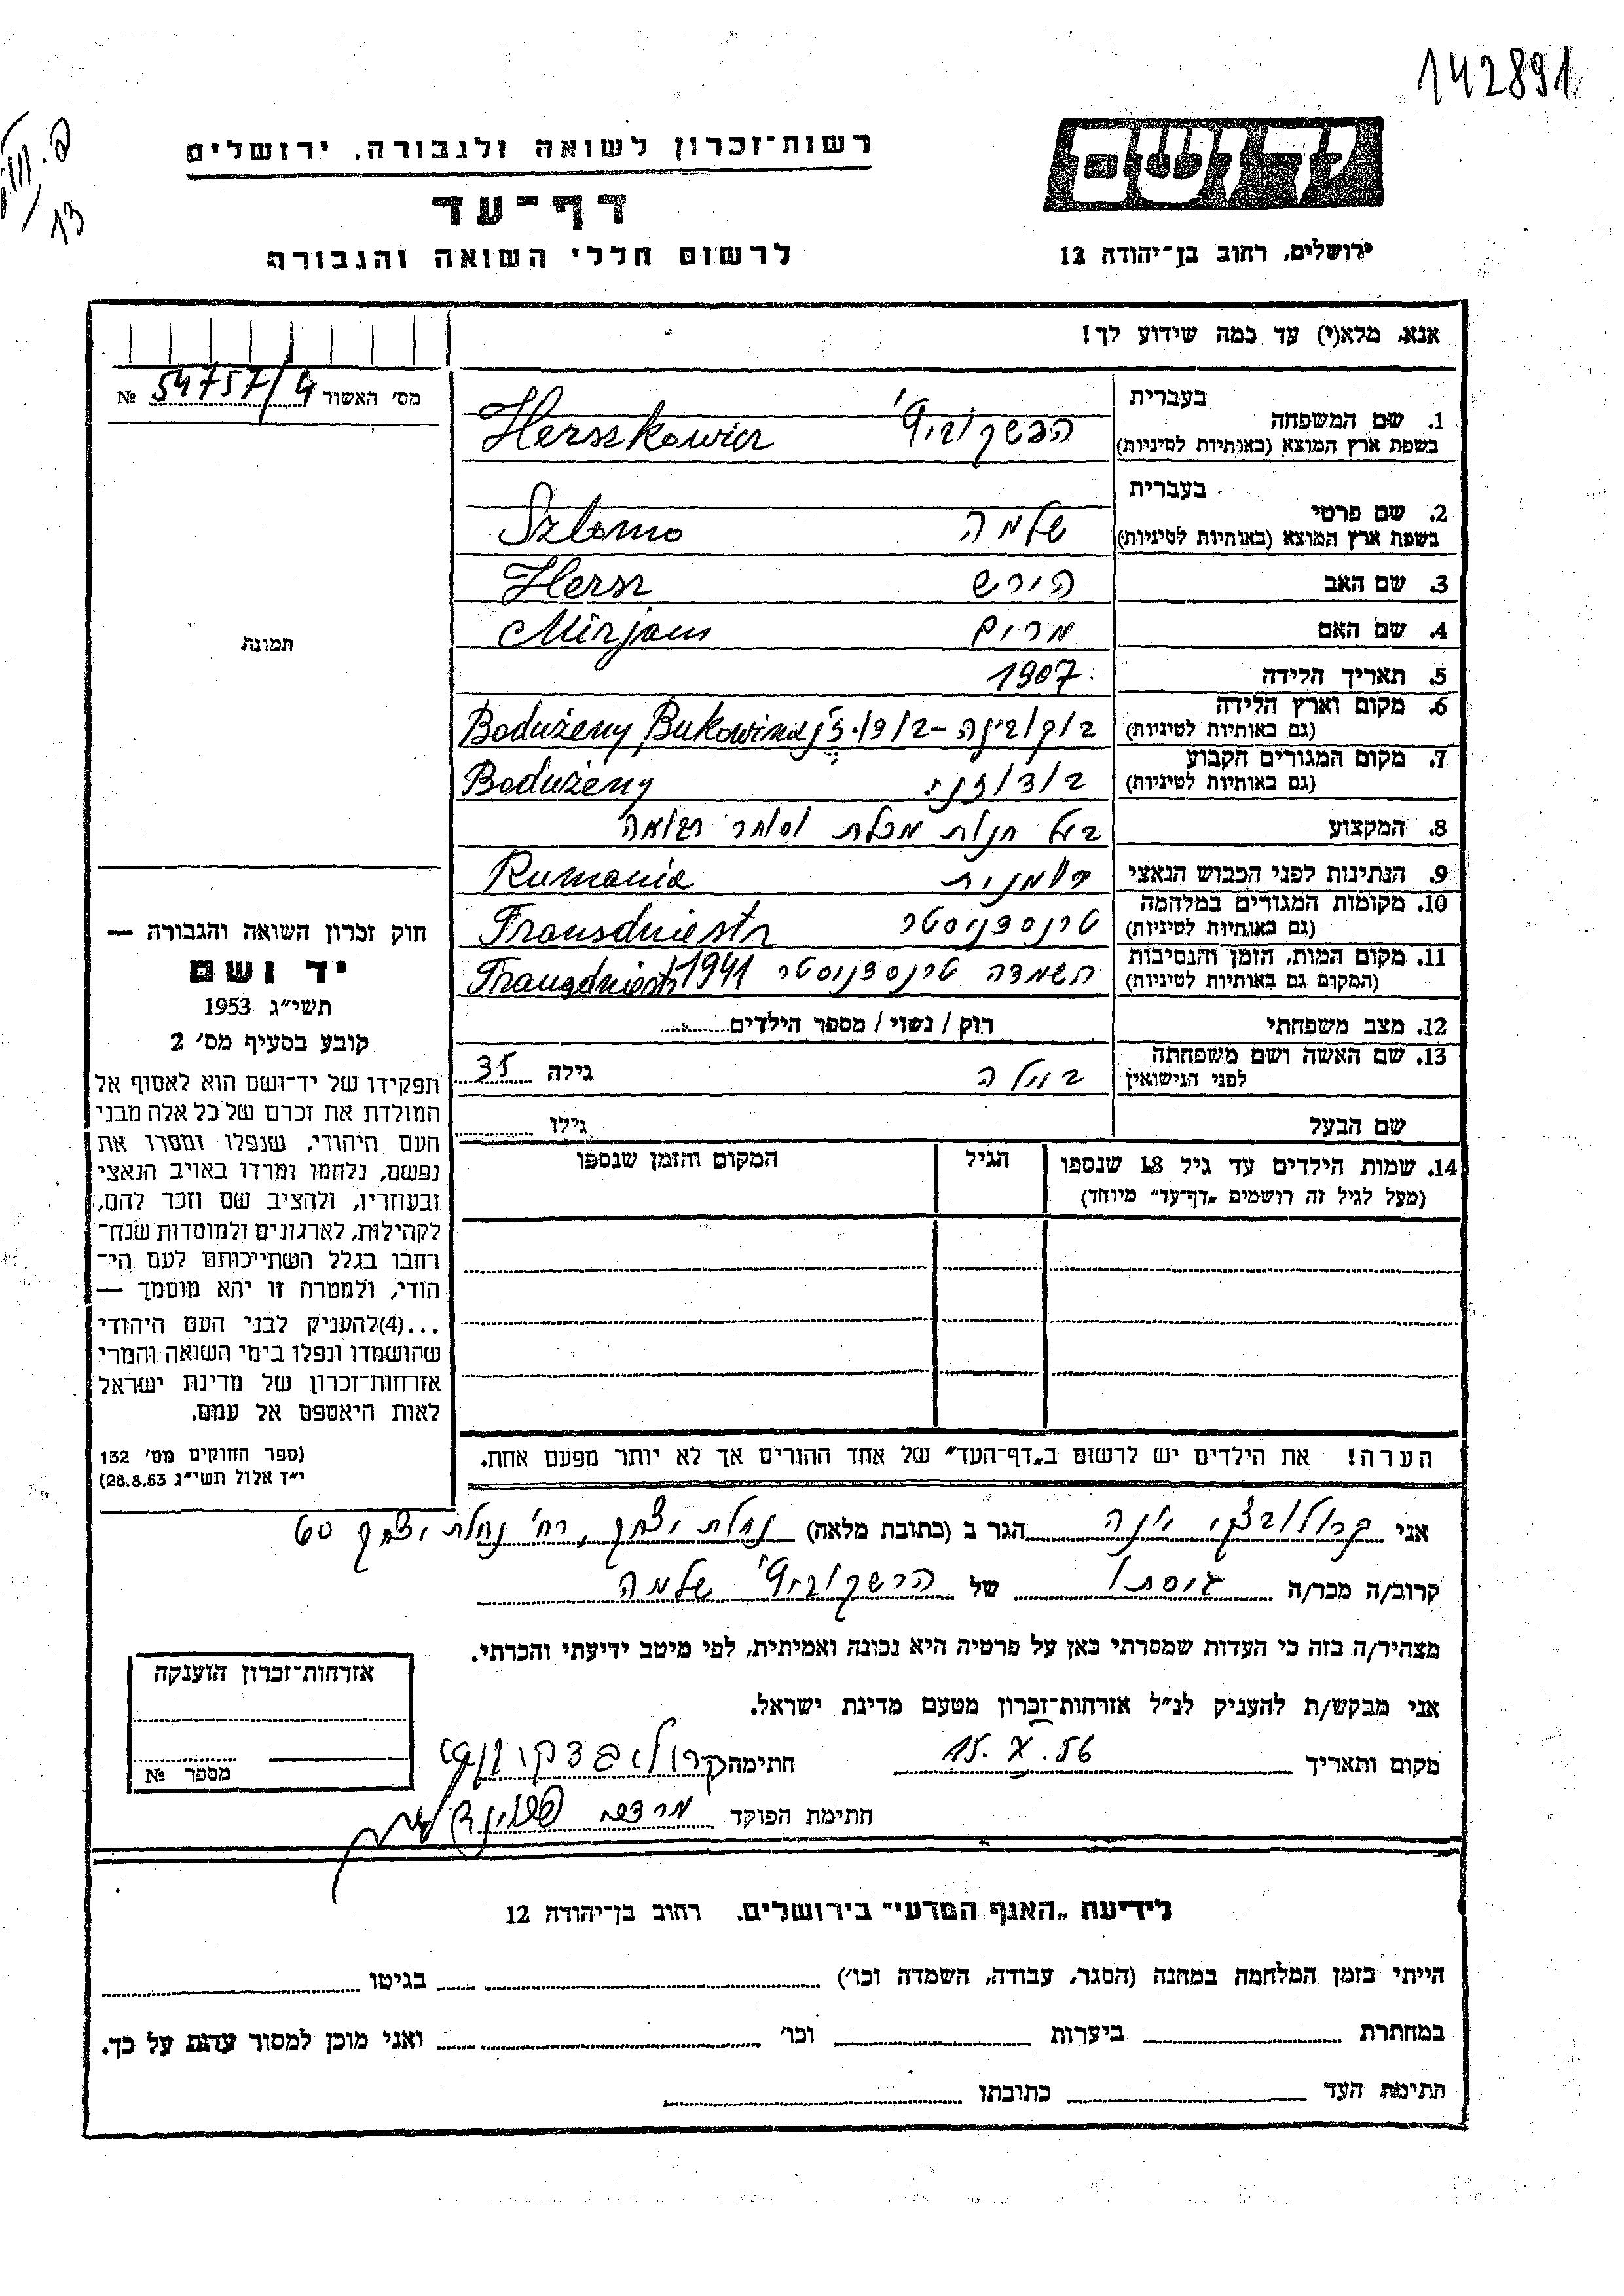 142891
יד ושם
רשות־זכרון לשואה ולגבורה, ירושלים
דף־עד
לרשום חללי השואה והגבורה
ירושלים, רחוב בן־יהודה 12
13
אנא, מלא(י) עד כמה שידוע לך!
מס' האשור 54757/4 №
תמונה
בעברית
1. שם המשפחה
בשפת ארץ המוצא (באותיות לטיניות)
הרשקוביץ' Herszkowicz
בעברית
2. שם פרטי
בשפת ארץ המוצא (באותיות לטיניות)
שלמה Szlomo
3. שם האב הירש Hersz
4. שם האם מרים Mirjam
5. תאריך הלידה 1907
6. מקום וארץ הלידה
(גם באותיות לטיניות)
בוקובינה - Bodużeny Bukowina
7. מקום המגורים הקבוע
(גם באותיות לטיניות)
Bodużeny
8. המקצוע בעל חנות מכלת וסוחר
9. הנתינות לפני הכבוש הנאצי רומנית Rumania
10. מקומות המגורים במלחמה
(גם באותיות לטיניות)
טרנסדניסטר Transdniestr
11. מקום המות, הזמן והנסיבות
(המקום גם באותיות לטיניות)
השמדה טרנסדניסטר 1941 Transdniestr
12. מצב משפחתי רוק / נשוי / מספר הילדים
13. שם האשה ושם משפחתה
לפני הנישואין
גילה 35
שם הבעל גילו
14. שמות הילדים עד גיל 18 שנספו הגיל המקום והזמן שנספו
(מעל לגיל זה רושמים „דף־עד” מיוחד)
הערה! את הילדים יש לרשום ב„דף־העד” של אחד ההורים אך לא יותר מפעם אחת.
חוק זכרון השואה והגבורה —
יד ושם
תשי״ג 1953
קובע בסעיף מס' 2
תפקידו של יד־ושם הוא לאסוף אל
המולדת את זכרם של כל אלה מבני
העם היהודי, שנפלו ומסרו את
נפשם, נלחמו ומרדו באויב הנאצי
ובעוזריו, ולהציב שם וזכר להם,
לקהילות, לארגונים ולמוסדות שנח־
רחבו בגלל השתייכותם לעם הי־
הודי, ולמטרה זו יהא מוסמך —
...(4)להעניק לבני העם היהודי
שהושמדו ונפלו בימי השואה והמרי
אזרחות־זכרון של מדינת ישראל
לאות היאספם אל עמם.
(ספר החוקים מס' 132
י״ז אלול תשי״ג 28.8.53)
אני הגר ב (כתובת מלאה) נחלת יצחק, רח' נחלת יצחק
קרוב/ה מכר/ה גיסתו של הרשקוביץ' שלמה
מצהיר/ה בזה כי העדות שמסרתי כאן על פרטיה היא נכונה ואמיתית, לפי מיטב ידיעתי והכרתי.
אני מבקש/ת להעניק לנ״ל אזרחות־זכרון מטעם מדינת ישראל.
מקום ותאריך 15. X. 56 חתימה
חתימת הפוקד
אזרחות־זכרון הוענקה
מספר №
לידיעת „האגף המדעי” בירושלים, רחוב בן־יהודה 12
הייתי בזמן המלחמה במחנה (הסגר, עבודה, השמדה וכו') בגיטו
במחתרת ביערות וכו' ואני מוכן למסור עדות על כך.
חתימת העד כתובתו